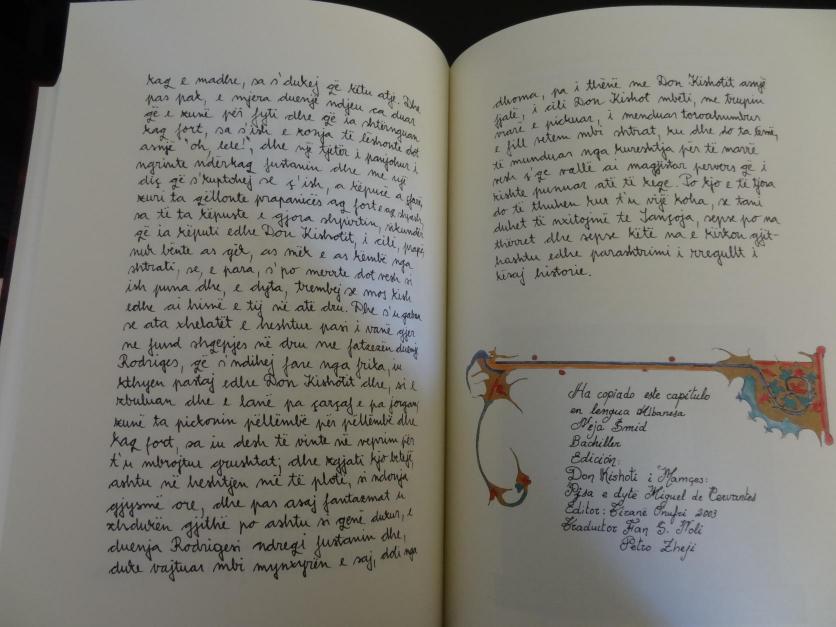 kaq e madhe, sa s'dukej gë këtu atje. Dhe
pas pak, e mjera duenjë ndjeu ca duar
që e zunë për fyti dhe që ia shtërnguan
kaq fort, sa s'ish e zonja të lëshonte dot
asnjë "oh, lele!", dhe një tjetër i panjohur i
ngrinte ndërkaq fustanin dhe me një
diç që s'kuptohej se ç'ish, a këpucë a
zuri ta qëllonte prapanicës aq fort e aq
sa të ta këpuste e gjora shpirtin, sikundër
që ia këputi edhe Don Kishotit, i cili, prapë,
nuk bënte as gëk, as mëk e as këmbë nga
shtrati, se, e para, s'po merrte dot vesh si
ish puna dhe, e dyta, trembej se mos kish
edhe ai hisnë e tij në atë dru. Dhe s'u gabua
se ata xhelatët e heshtur pasi i vanë gjer
ne fund shqepjes në dru me fatzezën duenjë
Rodriges, që s'ndihej fare nga frika, iu
kthyen pastaj edhe Don Kishotit dhe, si e
zbuluan dhe e lanë pa çarçaf e pa jorgan,
zunë ta pickonin pëllëmbë për pëllëmbë dhe
kaq fort, sa iu desh të vinte në veprim për
t'u mbrojtur grushtat; dhe zgjati kjo betejë,
ashtu në heshtjen më të plotë, si ndonja
gjysmë ore, dhe pas asaj fantazmat u
zhdukën gjithë po ashtu si qenë dukur, e
duenja Rodrigesi ndreqi fustanin dhe,
duke vajtuar mbi mynxyrën e saj, doli nga
dhoma, pa i thënë me Don Kishotit asnjë
fjalë, i cili Don Kishot mbeti, me trupin
vrarë e pickuar, i menduar
e fill vetem mbi shtrat, ku dhe do ta lëmë,
të munduar nga kureshtja për të marrë
vesh s'qe vallë ai magjistar pervers që i
kishte punuar atë të keqe. Po kjo e të tjera
do të thuhen kur t'u vijë koha, se tani
duhet të nxitojmë te Sançoja, sepse po na
thërret dhe sepse këtë na e kërkon gjit-
hashtu edhe parashtrimi i rregullt i
kësaj historie.
Ha copiado este capítulo
en lengua Albanesa
Neja Šmid
Bachiller
Edición:
Don Kishoti i Mançes:
Pjsa e dytë Miguel de Cervantes
Editor: Tiranë Onufri 2003
Traductor Fan S. Noli
Petro Zheji